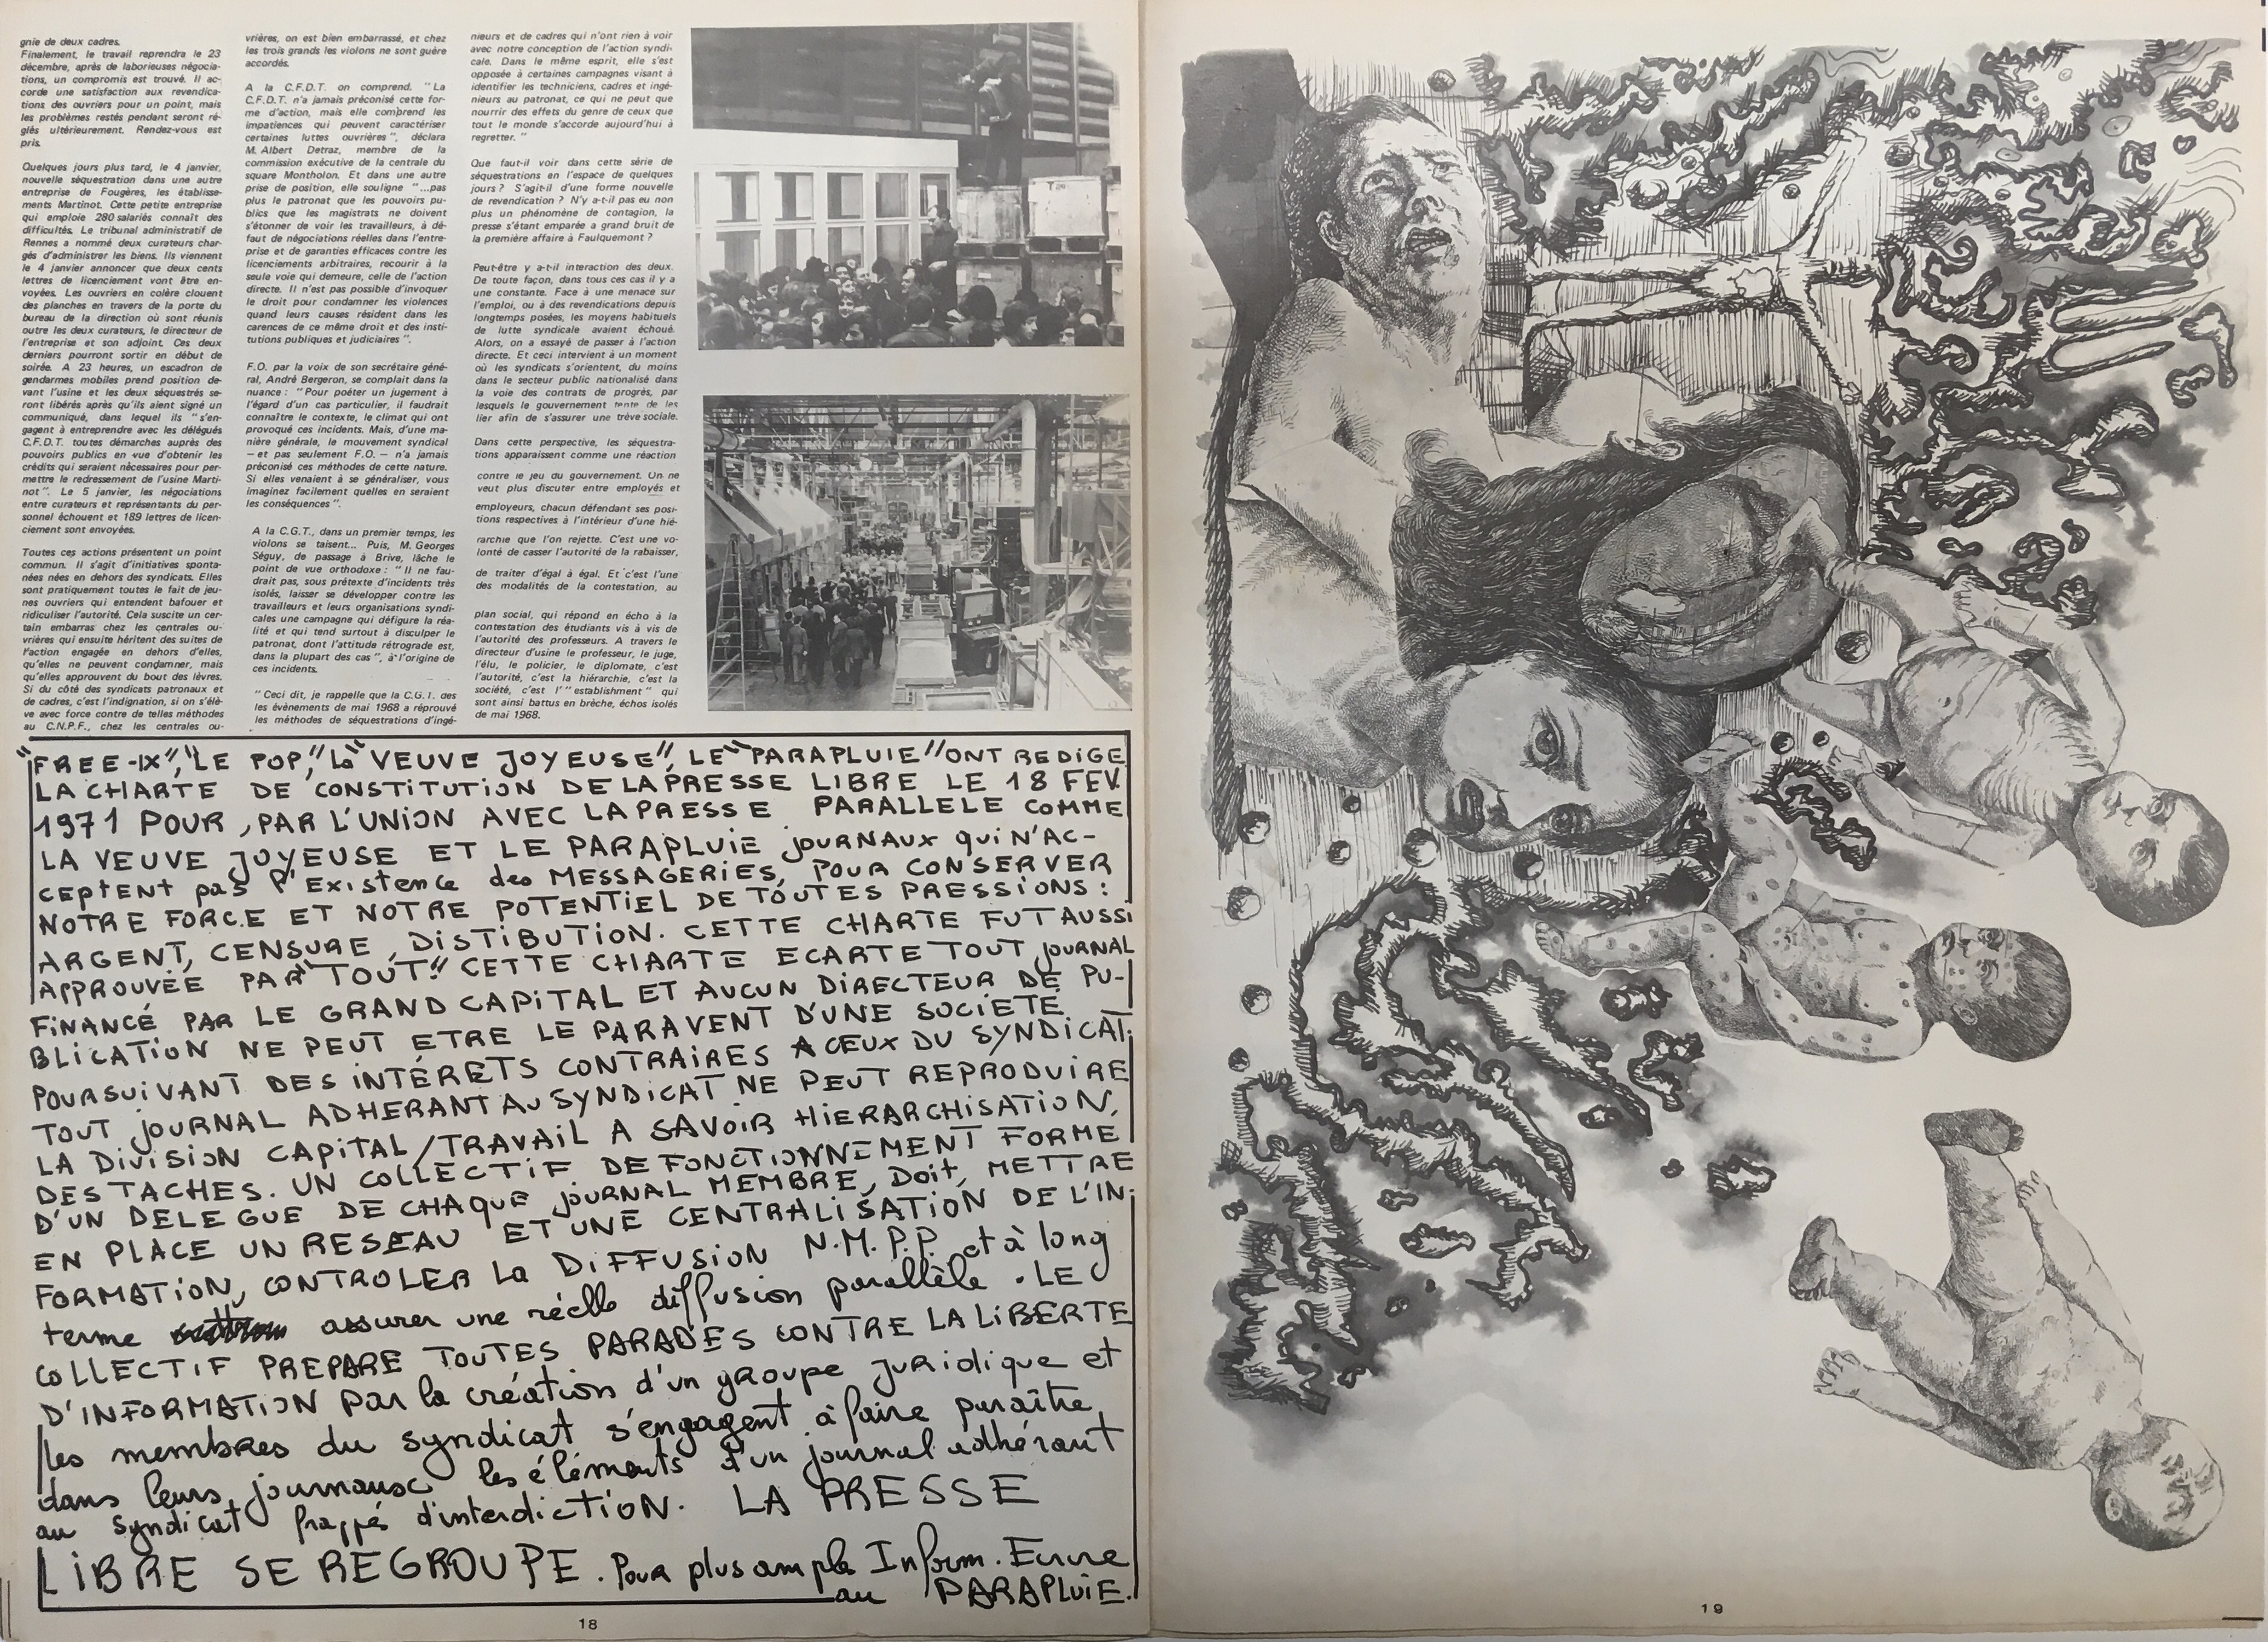 gnie de deux cadres.
Finalement, le travail reprendra le 23
décembre, après de laborieuses négocia-
tions, un compromis est trouvé. Il ac-
corde une satisfaction aux revendica-
tions des ouvriers pour un point, mais
les problèmes restés pendant seront ré-
glés ultérieurement. Rendez-vous est
pris.
Quelques jours plus tard, le 4 janvier,
nouvelle séquestration dans une autre
entreprise de Fougères, les établisse-
ments Martinot. Cette petite entreprise
qui emploie 280 salariés connaît des
difficultés. Le tribunal administratif de
Rennes a nommé deux curateurs char-
gés d'administrer les biens. Ils viennent
le 4 janvier annoncer que deux cents
lettres de licenciement vont être en-
voyées. Les ouvriers en colère clouent
des planches en travers de la porte du
bureau de la direction où sont réunis
outre les deux curateurs, le directeur de
l'entreprise et son adjoint. Ces deux
derniers pourront sortir en début de
soirée. A 23 heures, un escadron de
gendarmes mobiles prend position de-
vant l'usine et les deux séquestrés se-
ront libérés après qu'ils aient signé un
communiqué, dans lequel ils "s'en-
gagent à entreprendre avec les délégués
C.F.D.T. toutes démarches auprès des
pouvoirs publics en vue d'obtenir les
crédits qui seraient nécessaires pour per-
mettre le redressement de l'usine Marti-
not". Le 5 janvier, les négociations
entre curateurs et représentants du per-
sonnel échouent et 189 lettres de licen-
ciement sont envoyées.
Toutes ces actions présentent un point
commun. Il s'agit d'initiatives sponta-
nées nées en dehors des syndicats. Elles
sont pratiquement toutes le fait de jeu-
nes ouvriers qui entendent bafouer et
ridiculiser l'autorité. Cela suscite un cer-
tain embarras chez les centrales ou-
vrières qui ensuite héritent des suites de
l'action engagée en dehors d'elles,
qu'elles ne peuvent condamner, mais
qu'elles approuvent du bout des lèvres.
Si du côté des syndicats patronaux et
de cadres, c'est l'indignation, si on s'élè-
ve avec force contre de telles méthodes
au C.N.P.F., chez les centrales ou-
vrières, on est bien embarrassé, et chez
les trois grands les violons ne sont guère
accordés.
A la C.F.D.T. on comprend. "La
C.F.D.T. n'a jamais préconisé cette for-
me d'action, mais elle comprend les
impatiences qui peuvent caractériser
certaines luttes ouvrières", déclara
M. Albert Detraz, membre de la
commission exécutive de la centrale du
square Montholon. Et dans une autre
prise de position, elle souligne "...pas
plus le patronat que les pouvoirs pu-
blics que les magistrats ne doivent
s'étonner de voir les travailleurs, à dé-
faut de négociations réelles dans l'entre-
prise et de garanties efficaces contre les
licenciements arbitraires, recourir à la
seule voie qui demeure, celle de l'action
directe. Il n'est pas possible d'invoquer
le droit pour condamner les violences
quand leurs causes résident dans les
carences de ce même droit et des insti-
tutions publiques et judiciaires".
F.O. par la voix de son secrétaire géné-
ral, André Bergeron, se complait dans la
nuance : "Pour poéter un jugement à
l'égard d'un cas particulier, il faudrait
connaître le contexte, le climat qui ont
provoqué ces incidents. Mais, d'une ma-
nière générale, le mouvement syndical
— et pas seulement F.O. — n'a jamais
préconisé ces méthodes de cette nature.
Si elles venaient à se généraliser, vous
imaginez facilement quelles en seraient
les conséquences".
A la C.G.T., dans un premier temps, les
violons se taisent... Puis, M. Georges
Séguy, de passage à Brive, lâche le
point de vue orthodoxe : "Il ne fau-
drait pas, sous prétexte d'incidents très
isolés, laisser se développer contre les
travailleurs et leurs organisations syndi-
cales une campagne qui défigure la réa-
lité et qui tend surtout à disculper le
patronat, dont l'attitude rétrograde est,
dans la plupart des cas", à l'origine de
ces incidents.
"Ceci dit, je rappelle que la C.G.T. dès
les évènements de mai 1968 a réprouvé
les méthodes de séquestrations d'ingé-
nieurs et de cadres qui n'ont rien à voir
avec notre conception de l'action syndi-
cale. Dans le même esprit, elle s'est
opposée à certaines campagnes visant à
identifier les techniciens, cadres et ingé-
nieurs au patronat, ce qui ne peut que
nourrir des effets du genre de ceux que
tout le monde s'accorde aujourd'hui à
regretter."
Que faut-il voir dans cette série de
séquestrations en l'espace de quelques
jours ? S'agit-il d'une forme nouvelle
de revendication ? N'y a-t-il pas eu non
plus un phénomène de contagion, la
presse s'étant emparée a grand bruit de
la première affaire à Faulquemont ?
Peut-être y a-t-il interaction des deux.
De toute façon, dans tous ces cas il y a
une constante. Face à une menace sur
l'emploi, ou à des revendications depuis
longtemps posées, les moyens habituels
de lutte syndicale avaient échoué.
Alors, on a essayé de passer à l'action
directe. Et ceci intervient à un moment
où les syndicats s'orientent, du moins
dans le secteur public nationalisé dans
la voie des contrats de progrès, par
lesquels le gouvernement tente de les
lier afin de s'assurer une trève sociale.
Dans cette perspective, les séquestra-
tions apparaissent comme une réaction
contre le jeu du gouvernement. On ne
veut plus discuter entre employés et
employeurs, chacun défendant ses posi-
tions respectives à l'intérieur d'une hié-
rarchie que l'on rejette. C'est une vo-
lonté de casser l'autorité de la rabaisser,
de traiter d'égal à égal. Et c'est l'une
des modalités de la contestation, au
plan social, qui répond en écho à la
contestation des étudiants vis à vis de
l'autorité des professeurs. A travers le
directeur d'usine le professeur, le juge,
l'élu, le policier, le diplomate, c'est
l'autorité, c'est la hiérarchie, c'est la
société, c'est l'"establishment" qui
sont ainsi battus en brèche, échos isolés
de mai 1968.
"FREE-IX", "LE POP", La "VEUVE JOYEUSE", LE "PARAPLUIE" ONT REDIGE
LA CHARTE DE CONSTITUTION DE LA PRESSE LIBRE LE 18 FEV.
1971 POUR, PAR L'UNION AVEC LA PRESSE PARALLELE COMME
LA VEUVE JOYEUSE ET LE PARAPLUIE journaux qui N'AC-
CEPTENT pas l'Existence des MESSAGERIES, POUR CONSERVER
NOTRE FORCE ET NOTRE POTENTIEL DE TOUTES PRESSIONS :
ARGENT, CENSURE, DISTIBUTION. CETTE CHARTE FUT AUSSI
APPROUVÉE PAR "TOUT!" CETTE CHARTE ECARTE TOUT JOURNAL
FINANCÉ PAR LE GRAND CAPITAL ET AUCUN DIRECTEUR DE PU-
BLICATION NE PEUT ETRE LE PARAVENT D'UNE SOCIETÉ
POURSUIVANT DES INTÉRETS CONTRAIRES A CEUX DU SYNDICAT.
TOUT JOURNAL ADHERANT AU SYNDICAT NE PEUT REPRODUIRE
LA DIVISION CAPITAL/TRAVAIL A SAVOIR HIERARCHISATION,
DES TACHES. UN COLLECTIF DE FONCTIONNEMENT FORME
D'UN DELEGUE DE CHAQUE JOURNAL MEMBRE, DOIT, METTRE
EN PLACE UN RESEAU ET UNE CENTRALISATION DE L'IN-
FORMATION, CONTROLER La DIFFUSION N.M.P.P. et à long
terme assurer une réelle diffusion parallèle. LE
COLLECTIF PREPARE TOUTES PARADES CONTRE LA LIBERTE
D'INFORMATION par la création d'un groupe juridique et
les membres du syndicat s'engagent à faire paraître
dans leurs journaux les éléments d'un journal adhérant
au syndicat frappés d'interdiction. LA PRESSE
LIBRE SE REGROUPE. Pour plus ample Inform. Ecrire
au PARAPLUIE.
18
19